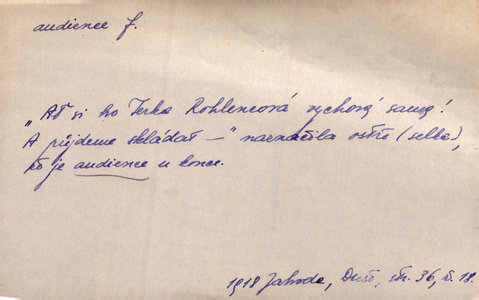 audience f.
„Ať si ho Terka Kohlencová vychová sama!
A půjdeme skládat —" naznačila ostře (selka),
že je audience u konce.
1918 Jahoda, str. 36, ř. 18.